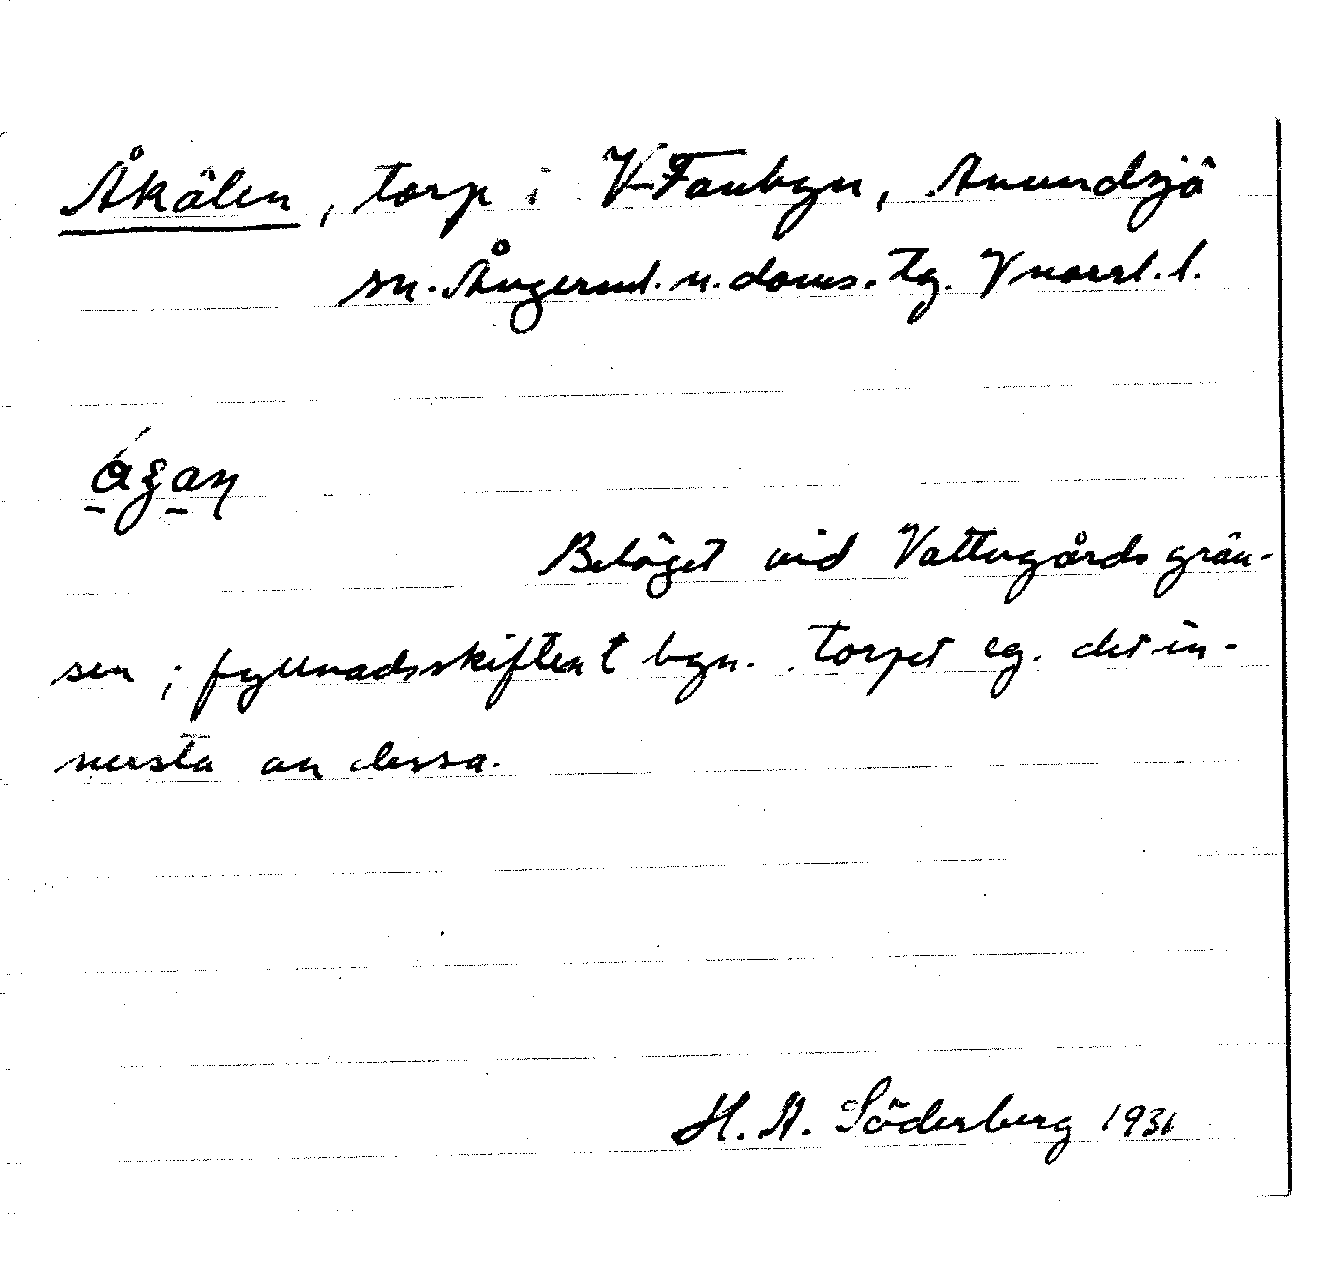 Åkälen, torp i V-Fanbyn, Anundsjö
sn. Ångerml. n. doms. tg. Vnorrl. l.
Beläget vid Vattugårdsgrän-
sen; fyllnadsskiften t byn. torpet eg. det in-
nersta av dessa.
H. A. Söderberg 1931